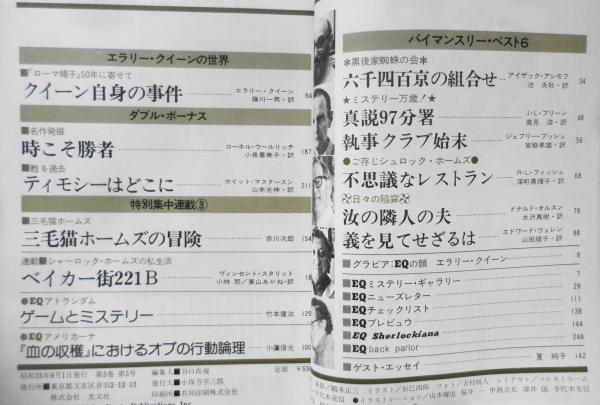 バイマンスリー・ベスト6
＊黒後家蜘蛛の会＊
六千四百京の組合せ アイザック・アシモフ 34
★ミステリー万歳！★
真説97分署 J・L・ブリーン 48
執事クラブ始末 ジェフリー・ブッシュ 56
宮脇孝雄・訳
●ご存じシュロック・ホームズ●
不思議なレストラン R・L・フィッシュ 68
深町眞理子・訳
日々の陥穽
汝の隣人の夫 ドナルド・オルスン 78
水沢真樹・訳
義を見てせざるは エドワード・ウェレン 88
山田順子・訳
■グラビア：EQの顔 エラリー・クイーン 9
■EQミステリー・ギャラリー 7
■EQニューズレター 29
■EQチェックリスト 111
■EQプレビュウ 138
■EQ Sherlockiana 144
■EQ back parlor 248
■ゲスト・エッセイ 夏 純子 142
エラリー・クイーンの世界
■『ローマ帽子』50年に寄せて
クイーン自身の事件 エラリー・クイーン 94
ダブル・ボーナス
■名作発掘
時こそ勝者 コーネル・ウールリッチ 187
小泉喜美子・訳
■甦る過去
ティモシーはどこに ホイット・マスタースン
山本光伸・訳
特別集中連載③
■三毛猫ホームズ
三毛猫ホームズの冒険 赤川次郎 154
連載■シャーロック・ホームズの私生活
ベイカー街221B ヴィンセント・スタリット
小林 司／東山あかね・訳
●EQアトランダム
ゲームとミステリー 竹本健治
●EQアメリカーナ
『血の収穫』におけるオプの行動論理 小鷹信光 100
昭和55年9月1日発行 第3巻 第5号
発行所■東京都文京区音羽2-12-13
株式会社 光文社
編集人■谷口尚規
発行人■小保方宇三郎
印刷所■共同印刷株式会社
定価